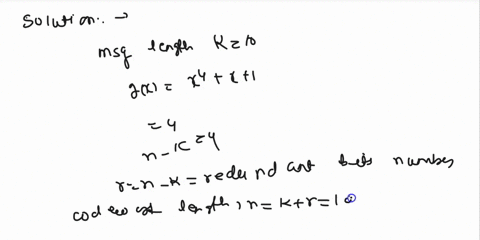 Solution: →
msg length K=10
g(x) = x⁴ + x + 1
= 4
n - K = 4
r=n-K = redundant bits number
codewort length, n = K+r = 10